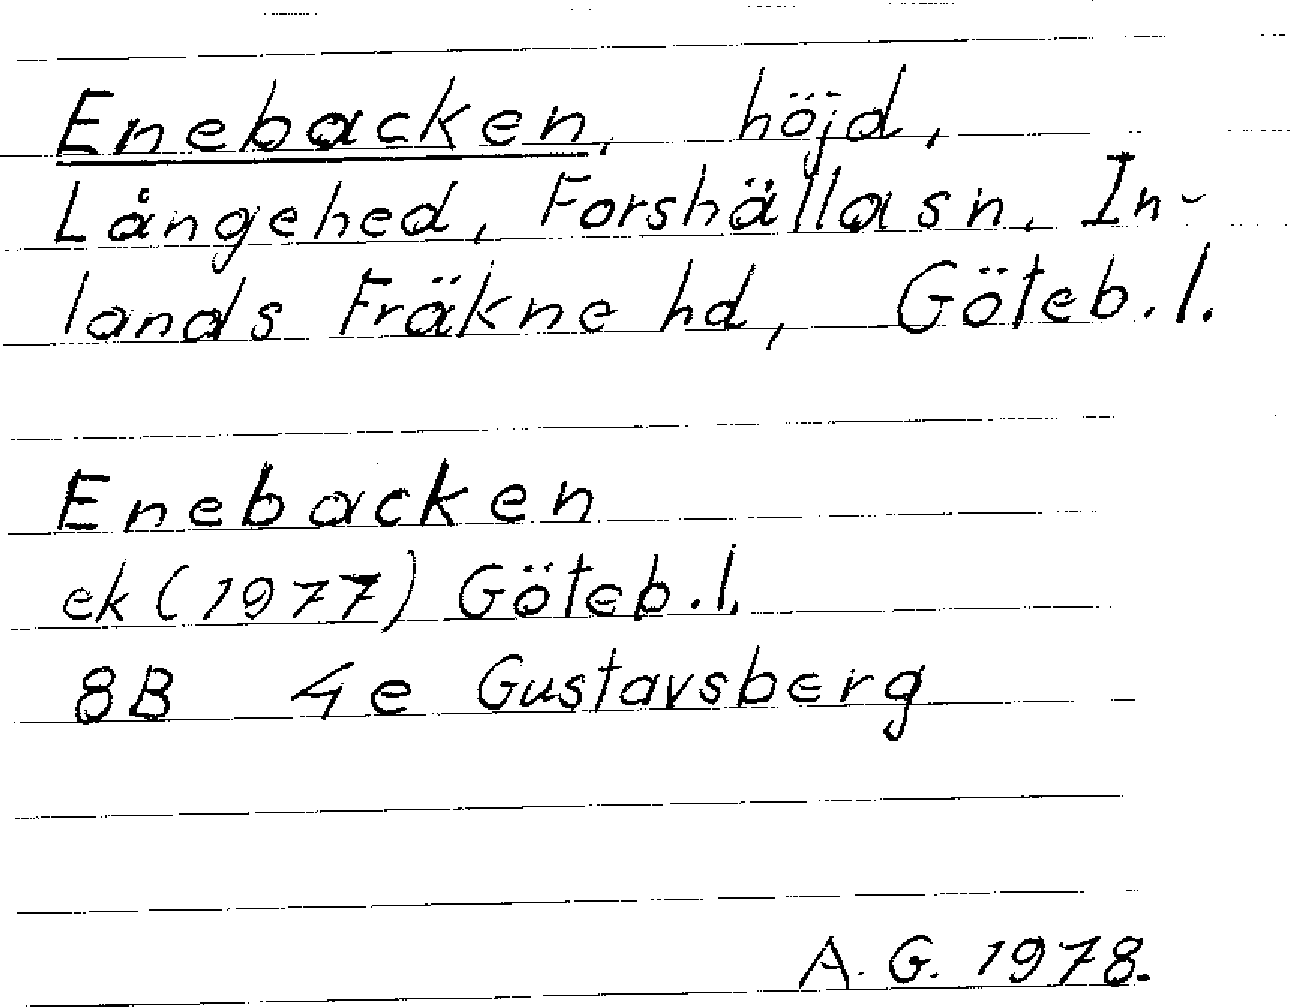 Enebacken, höjd,
Långehed, Forshälla sn, In-
lands Fräkne hd, Göteb. l.
Enebacken
ek (1977) Göteb. l.
8B 4e Gustavsberg
A. G. 1978.